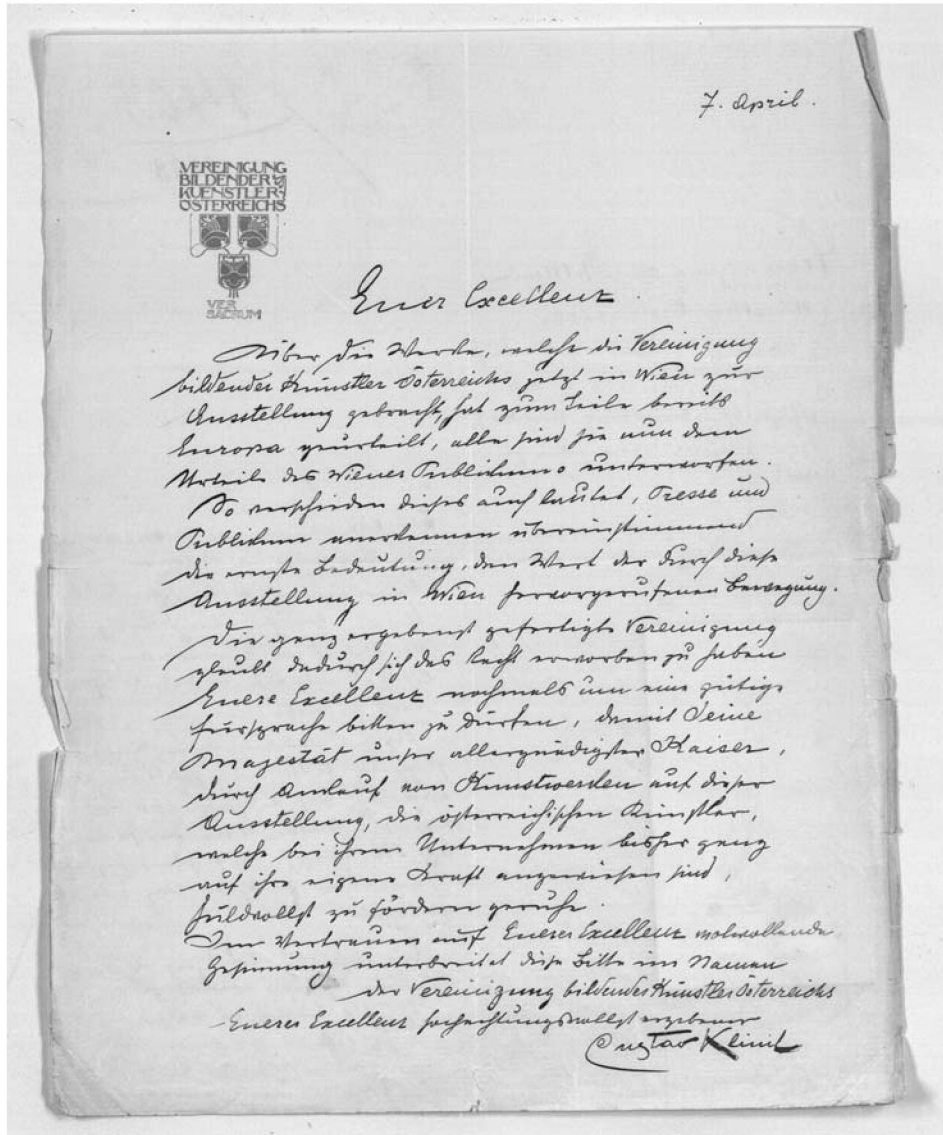 7. April.
VEREINIGUNG
BILDENDER
KUENSTLER
ÖSTERREICHS
VER
SACRUM
Euer Excellenz.
Über die Werke, welche die Vereinigung
bildender Künstler Österreichs jetzt in Wien zur
Ausstellung gebracht, hat zum Teile bereits
Europa geurteilt, alle sind sie nun dem
Urteile des Wiener Publikums unterworfen.
So verschieden dieses auch lautet, Presse und
Publikum anerkennen übereinstimmend
die ernste Bedeutung, den Wert der durch diese
Ausstellung in Wien hervorgerufenen Bewegung.
Die ganz ergebenst gefertigte Vereinigung
glaubt dadurch sich das Recht erworben zu haben
Euere Excellenz nochmals um eine gütige
Fürsprache bitten zu dürfen, damit Seine
Majestät unser allergnädigster Kaiser,
durch Ankauf von Kunstwerken auf dieser
Ausstellung, die österreichischen Künstler,
welche bei ihrem Unternehmen bisher ganz
auf ihre eigene Kraft angewiesen sind,
huldvollst zu fördern geruhe.
Im Vertrauen auf Euerer Excellenz wolwollende
Gesinnung unterbreitet diese Bitte im Namen
der Vereinigung bildender Künstler Österreichs
Euerer Excellenz hochachtungsvollst ergebener
Gustav Klimt